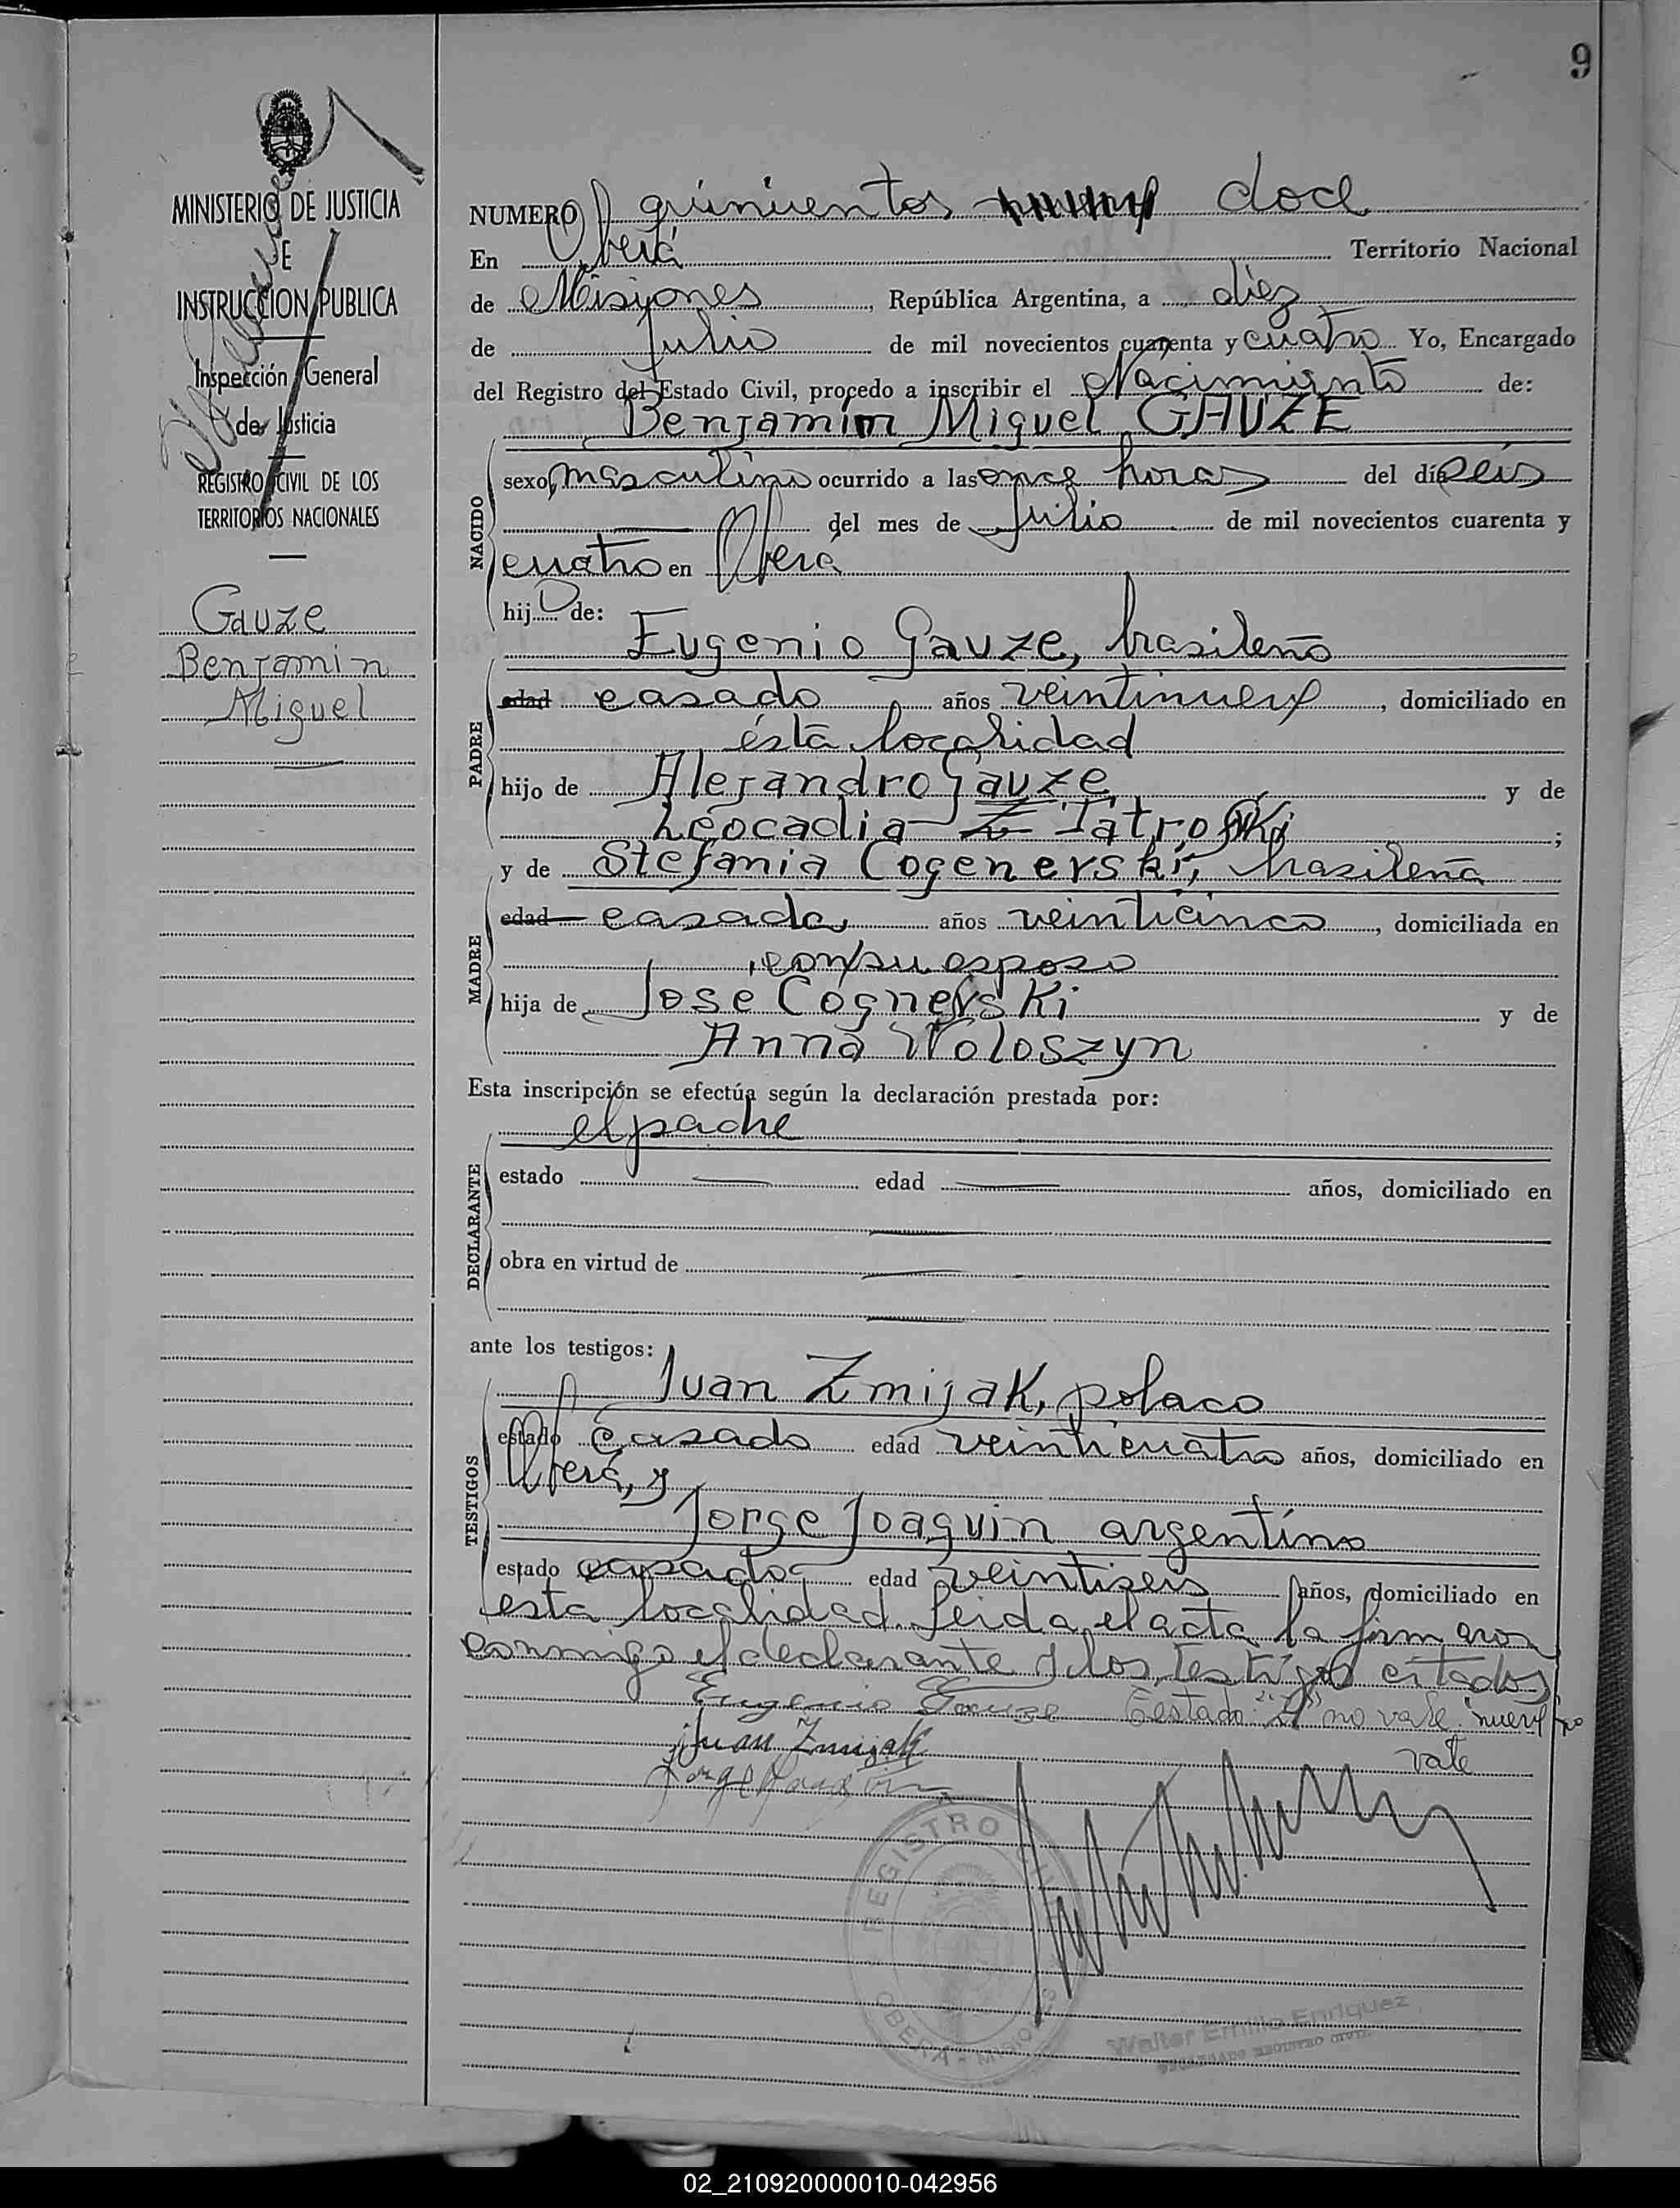 9
MINISTERIO DE JUSTICIA
E
INSTRUCCION PUBLICA
Inspección General
de Justicia
REGISTRO CIVIL DE LOS
TERRITORIOS NACIONALES
Nacimiento
Gauze
Benjamin
Miguel
NUMERO quinientos doce
En Oberá Territorio Nacional
de Misiones, República Argentina, a diez
de Julio de mil novecientos cuarenta y cuatro Yo, Encargado
del Registro del Estado Civil, procedo a inscribir el Nacimiento de:
Benjamín Miguel GAUZE
NACIDO
sexo masculino ocurrido a las once horas del día seis
del mes de Julio de mil novecientos cuarenta y
cuatro en Oberá
hijo de:
PADRE
Eugenio Gauze, brasileño
edad casado años veintinueve, domiciliado en
ésta localidad
hijo de Alejandro Gauze y de
Leocadia Z Iatroski;
MADRE
y de Stefania Cogenerski, brasileña
edad casada, años veinticinco, domiciliada en
con su esposo
hija de Jose Cognerski y de
Anna Woloszyn
Esta inscripción se efectúa según la declaración prestada por:
DECLARANTE
el padre
estado edad años, domiciliado en
obra en virtud de
ante los testigos:
TESTIGOS
Juan Zmijak, polaco
estado casado edad veinticuatro años, domiciliado en
Oberá, y
Jorge Joaquin argentino
estado casado edad veintiseis años, domiciliado en
esta localidad. Leida el acta la firmaron
conmigo el declarante y los testigos citados
Eugenio Gauze Testado: "Z" no vale. "nueve" no
Juan Zmijak vale
Jorge Joaquin
REGISTRO CIVIL
OBERA - MISIONES
Walter Emilio Enriquez
ENCARGADO REGISTRO CIVIL
02_210920000010-042956